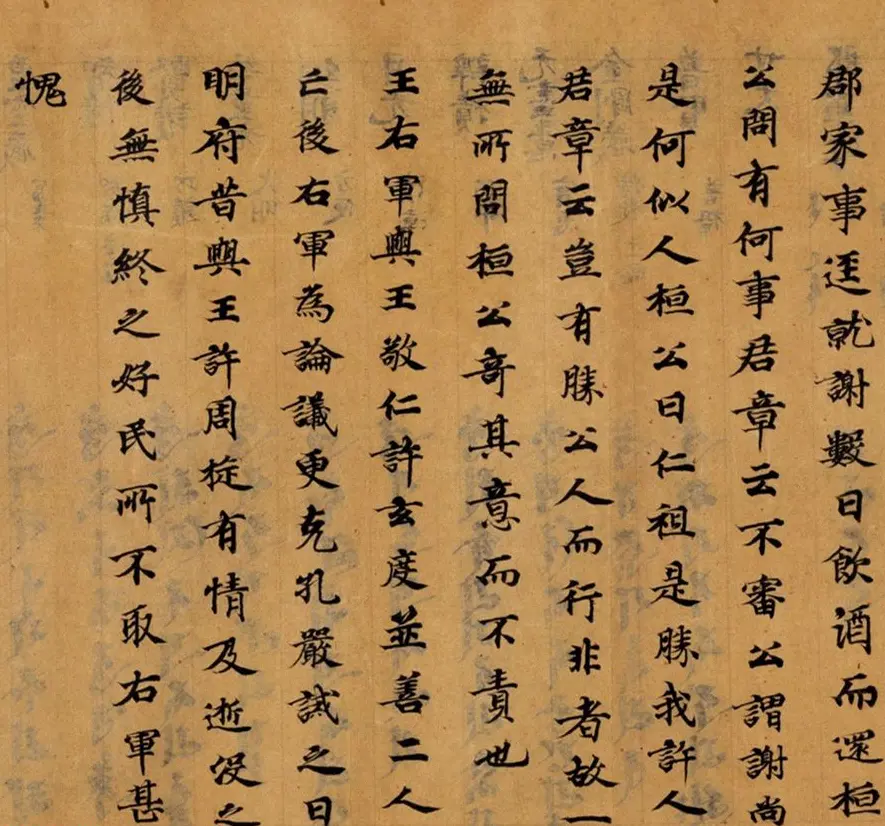 郡家事逕就謝數日飲酒而還桓
公問有何事君章云不審公謂謝尚
是何似人桓公曰仁祖是勝我許人
君章云豈有勝公人而行非者故一
無所問桓公奇其意而不責也
王右軍與王敬仁許玄度並善二人
亡後右軍為論議更克孔嚴誡之曰
明府昔與王許周旋有情及逝没之
後無慎終之好民所不取右軍甚
愧